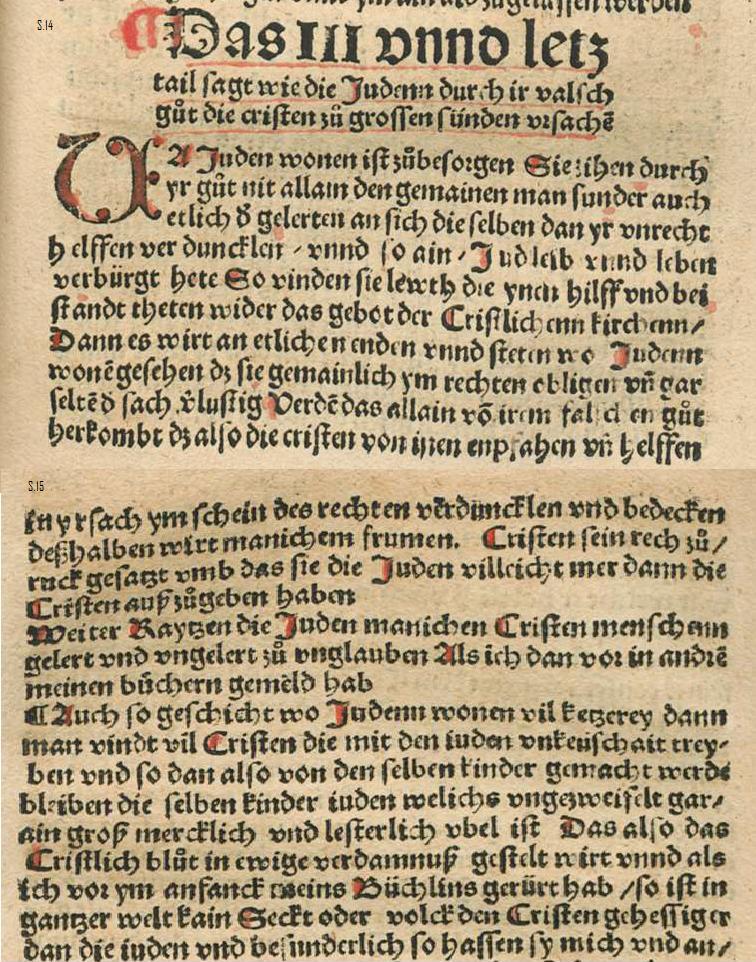 S.14
Das III vnnd letz
tail sagt wie die Judenn durch ir valsch
gůt die cristen zů grossen sünden vrsachē
WA Juden wonen ist zůbesorgen Sie zihen durch
yr gůt nit allain den gemainen man sunder auch
etlich d̕ gelerten an sich die selben dan yr vnrecht
helffen ver duncklen / vnnd so ain / Jud leib vnnd leben
verbürgt hete So vinden sie lewth die ynen hilff vnd bei
standt theten wider das gebot der Cristlichenn kirchenn/
Dann es wirt an etlichen enden vnnd steten wo Judenn
wonē gesehen dz sie gemainlich ym rechten obligen vn̄ gar
seltē d̕ sach v̕lustig Verdē das allain vō irem falschen gůt
herkombt dz also die cristen von inen enpfahen vn̄ helffen
in yr sach ym schein des rechten vērduncklen vnd bedecken
deßhalben wirt manichem frumen. Cristen sein rech zů/
ruck gesatzt vmb das sie die Juden villeicht mer dann die
Cristen auß zůgeben haben
S.15
Weiter Raytzen die Juden manichen Cristen menschenn
gelert vnd vngelert zů vnglauben Als ich dan vor in andrē
meinen büchern gemeld hab
¶ Auch so geschicht wo Judenn wonen vil ketzerey dann
man vindt vil Cristen die mit den iuden vnkeuschait trey-
ben vnd so dan also von den selben kinder gemacht werdē
bleiben die selben kinder iuden welichs vngezweifelt gar/
ain groß mercklich vnd lesterlich vbel ist Das also das
Cristlich blůt in ewige verdamnuß gestelt wirt vnnd als
ich vor ym anfanck meins Büchlins gerürt hab / so ist in
gantzer welt kain Seckt oder volck den Cristen gehessiger
dan die iuden vnd besunderlich so hassen sy mich vnd an/